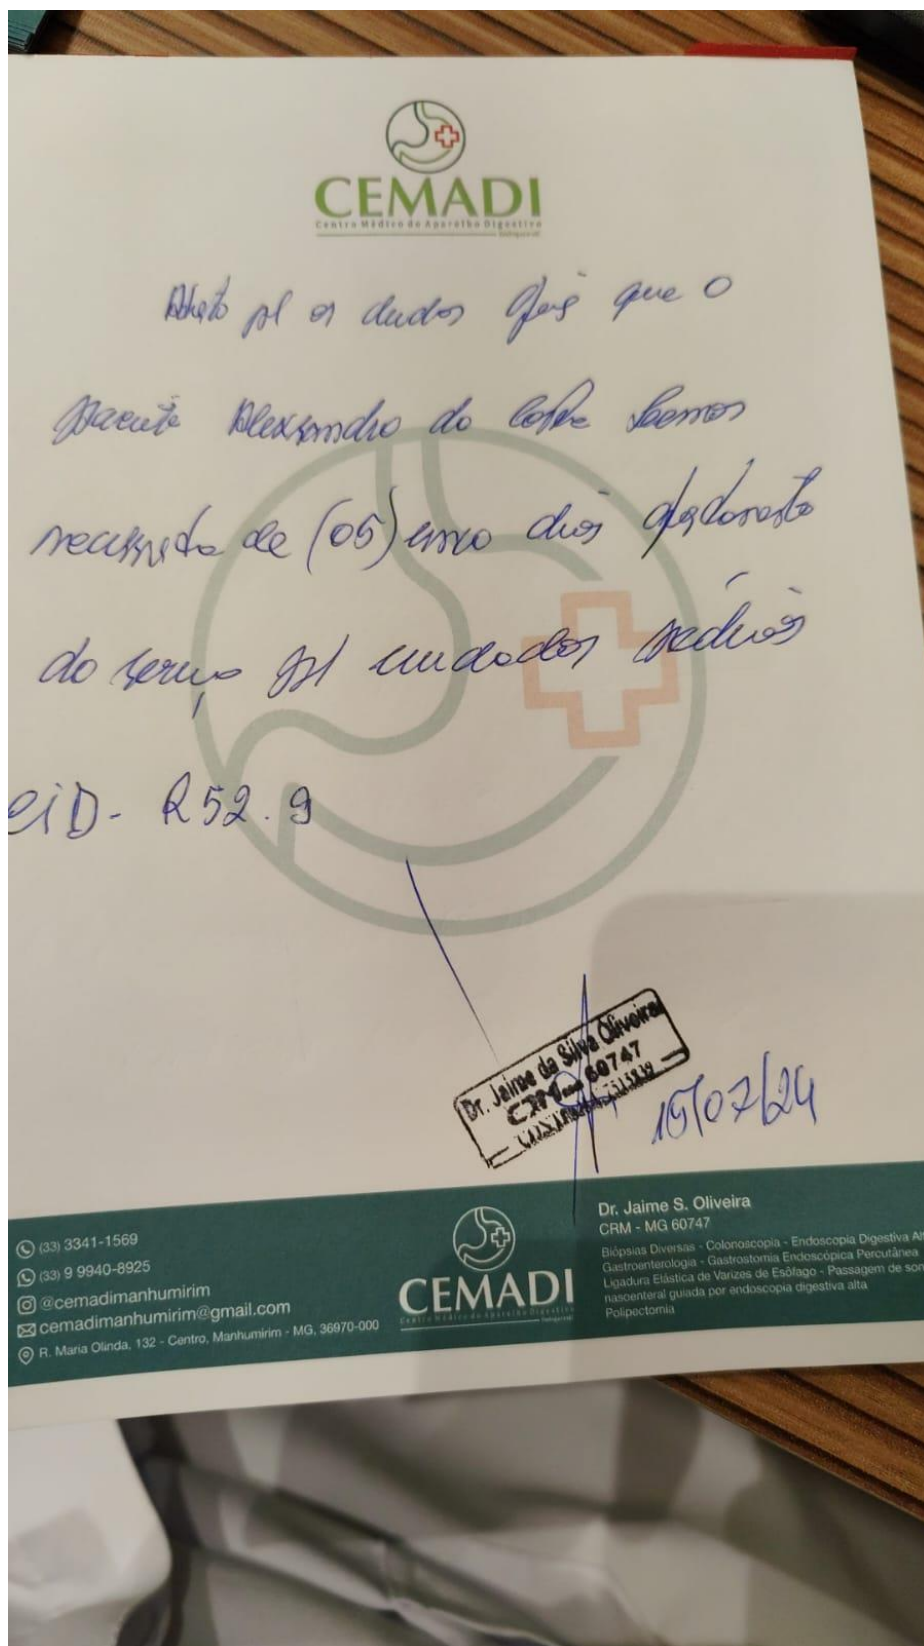 CEMADI
Centro Médico do Aparelho Digestivo
Atesto p/ os devidos fins que o
paciente Alexsandro da Costa
necessita de (05) cinco dias afastamento
do serviço p/ cuidados médicos
CID - R52.9
Dr. Jaime da Silva Oliveira
60747
15/07/24
(33) 3341-1569
(33) 9 9940-8925
@cemadimanhumirim
cemadimanhumirim@gmail.com
R. Maria Olinda, 132 - Centro, Manhumirim - MG, 36970-000
CEMADI
Centro Médico do Aparelho Digestivo
Dr. Jaime S. Oliveira
CRM - MG 60747
Biópsias Diversas - Colonoscopia - Endoscopia Digestiva Alt
Gastroenterologia - Gastrostomia Endoscópica Percutânea
Ligadura Elástica de Varizes de Esôfago - Passagem de son
nasoenteral guiada por endoscopia digestiva alta
Polipectomia